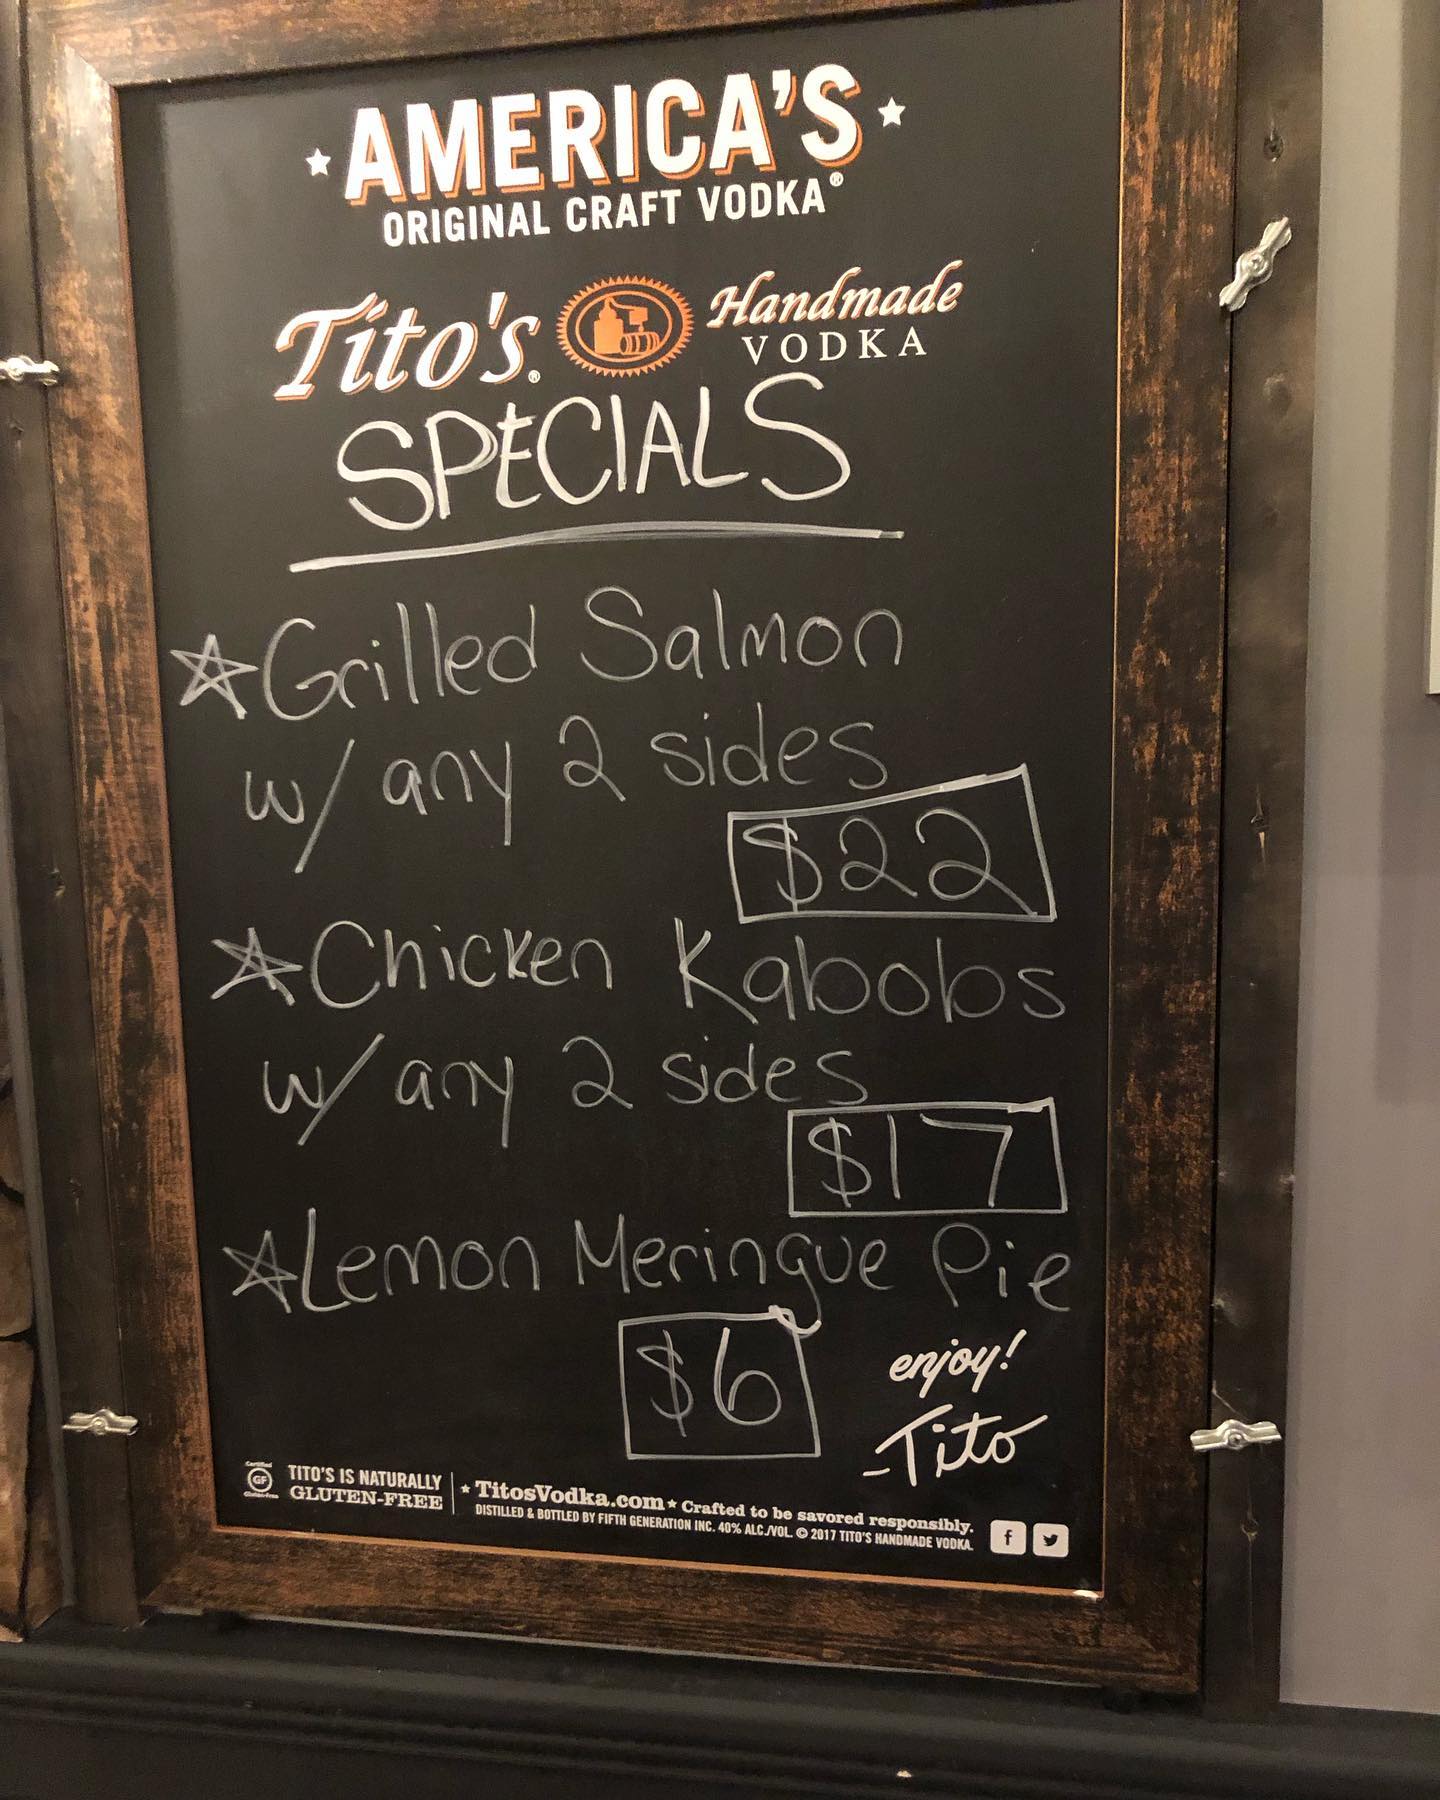 AMERICA'S
ORIGINAL CRAFT VODKA®
Tito's® Handmade
VODKA
SPECIALS
☆Grilled Salmon
w/ any 2 sides
$22
☆Chicken Kabobs
w/ any 2 sides
$17
☆Lemon Meringue Pie
$6
enjoy!
-Tito
Certified
GF
Gluten-Free
TITO'S IS NATURALLY
GLUTEN-FREE
★ TitosVodka.com ★ Crafted to be savored responsibly.
DISTILLED & BOTTLED BY FIFTH GENERATION INC. 40% ALC./VOL. © 2017 TITO'S HANDMADE VODKA.
f